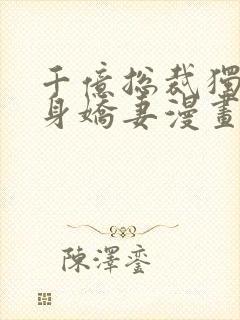 千億總裁獨
身嬌妻漫畫
陳澤鑾